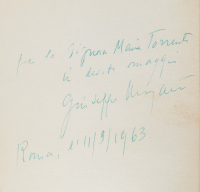 per la Signora Maria Torrenti
in devoto omaggio
Giuseppe
Roma, 11/3/1963